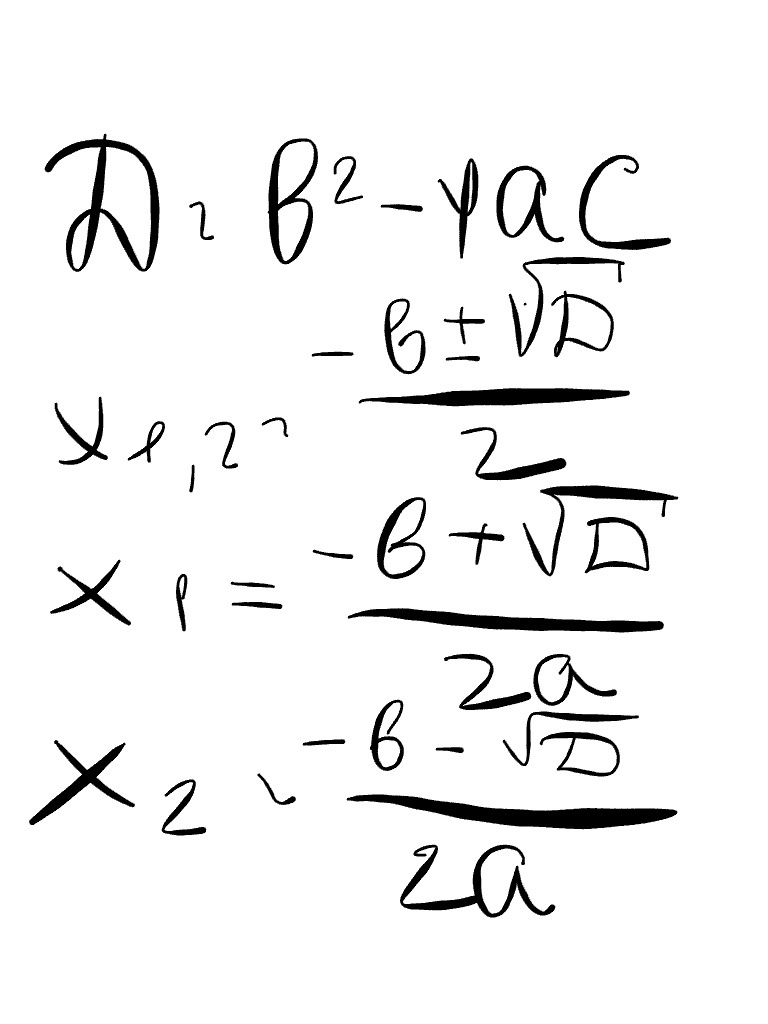 D = b² - 4ac
x₁,₂ = (-b ± √D) / 2
x₁ = (-b + √D) / 2a
x₂ = (-b - √D) / 2a